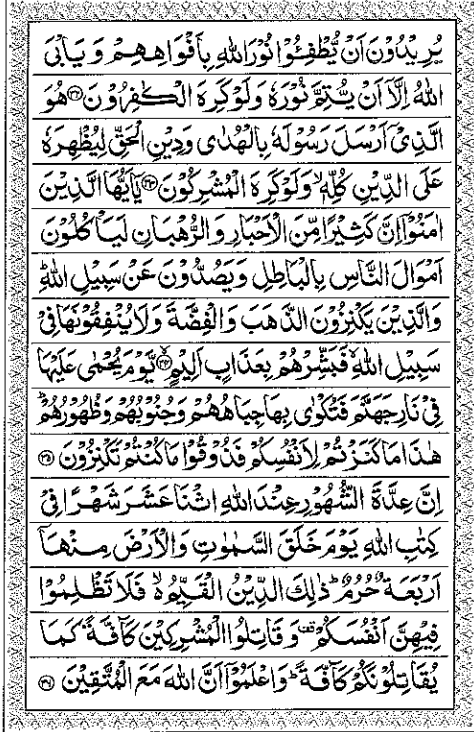 يُرِيْدُوْنَ اَنْ يُّطْفِـُٔوْا نُوْرَ اللّٰهِ بِاَفْوَاهِهِمْ وَ يَاْبَى
اللّٰهُ اِلَّاۤ اَنْ يُّتِمَّ نُوْرَهٗ وَ لَوْ كَرِهَ الْكٰفِرُوْنَ ۝۳۲ هُوَ
الَّذِيْۤ اَرْسَلَ رَسُوْلَهٗ بِالْهُدٰى وَ دِيْنِ الْحَقِّ لِيُظْهِرَهٗ
عَلَى الدِّيْنِ كُلِّهٖ ۙ وَ لَوْ كَرِهَ الْمُشْرِكُوْنَ ۝۳۳ يٰۤاَيُّهَا الَّذِيْنَ
اٰمَنُوْۤا اِنَّ كَثِيْرًا مِّنَ الْاَحْبَارِ وَ الرُّهْبَانِ لَيَاْكُلُوْنَ
اَمْوَالَ النَّاسِ بِالْبَاطِلِ وَ يَصُدُّوْنَ عَنْ سَبِيْلِ اللّٰهِ ؕ
وَ الَّذِيْنَ يَكْنِزُوْنَ الذَّهَبَ وَ الْفِضَّةَ وَ لَا يُنْفِقُوْنَهَا فِيْ
سَبِيْلِ اللّٰهِ ۙ فَبَشِّرْهُمْ بِعَذَابٍ اَلِيْمٍ ۝۳۴ ۙ يَّوْمَ يُحْمٰى عَلَيْهَا
فِيْ نَارِ جَهَنَّمَ فَتُكْوٰى بِهَا جِبَاهُهُمْ وَ جُنُوْبُهُمْ وَ ظُهُوْرُهُمْ ؕ
هٰذَا مَا كَنَزْتُمْ لِاَنْفُسِكُمْ فَذُوْقُوْا مَا كُنْتُمْ تَكْنِزُوْنَ ۝۳۵
اِنَّ عِدَّةَ الشُّهُوْرِ عِنْدَ اللّٰهِ اثْنَا عَشَرَ شَهْرًا فِيْ
كِتٰبِ اللّٰهِ يَوْمَ خَلَقَ السَّمٰوٰتِ وَ الْاَرْضَ مِنْهَاۤ
اَرْبَعَةٌ حُرُمٌ ؕ ذٰلِكَ الدِّيْنُ الْقَيِّمُ ۙ۬ فَلَا تَظْلِمُوْا
فِيْهِنَّ اَنْفُسَكُمْ ۫ وَ قَاتِلُوا الْمُشْرِكِيْنَ كَآفَّةً كَمَا
يُقَاتِلُوْنَكُمْ كَآفَّةً ؕ وَ اعْلَمُوْۤا اَنَّ اللّٰهَ مَعَ الْمُتَّقِيْنَ ۝۳۶